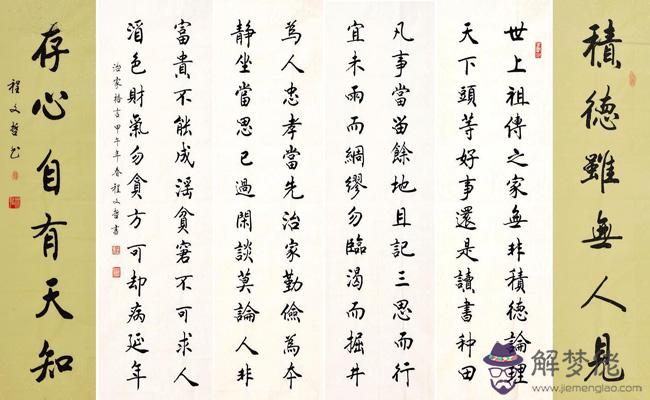 積德雖無人見
世上祖傳之家無非積德論理
天下頭等好事還是讀書種田
凡事當留餘地且記三思而行
宜未雨而綢繆勿臨渴而掘井
為人忠孝當先治家勤儉為本
靜坐當思己過閑談莫論人非
富貴不能成淫貧窘不可求人
酒色財氣勿貪方可却病延年
治家格言甲午年春程文哲書
存心自有天知
程文哲書
解梦佬
www.jiemenglao.com